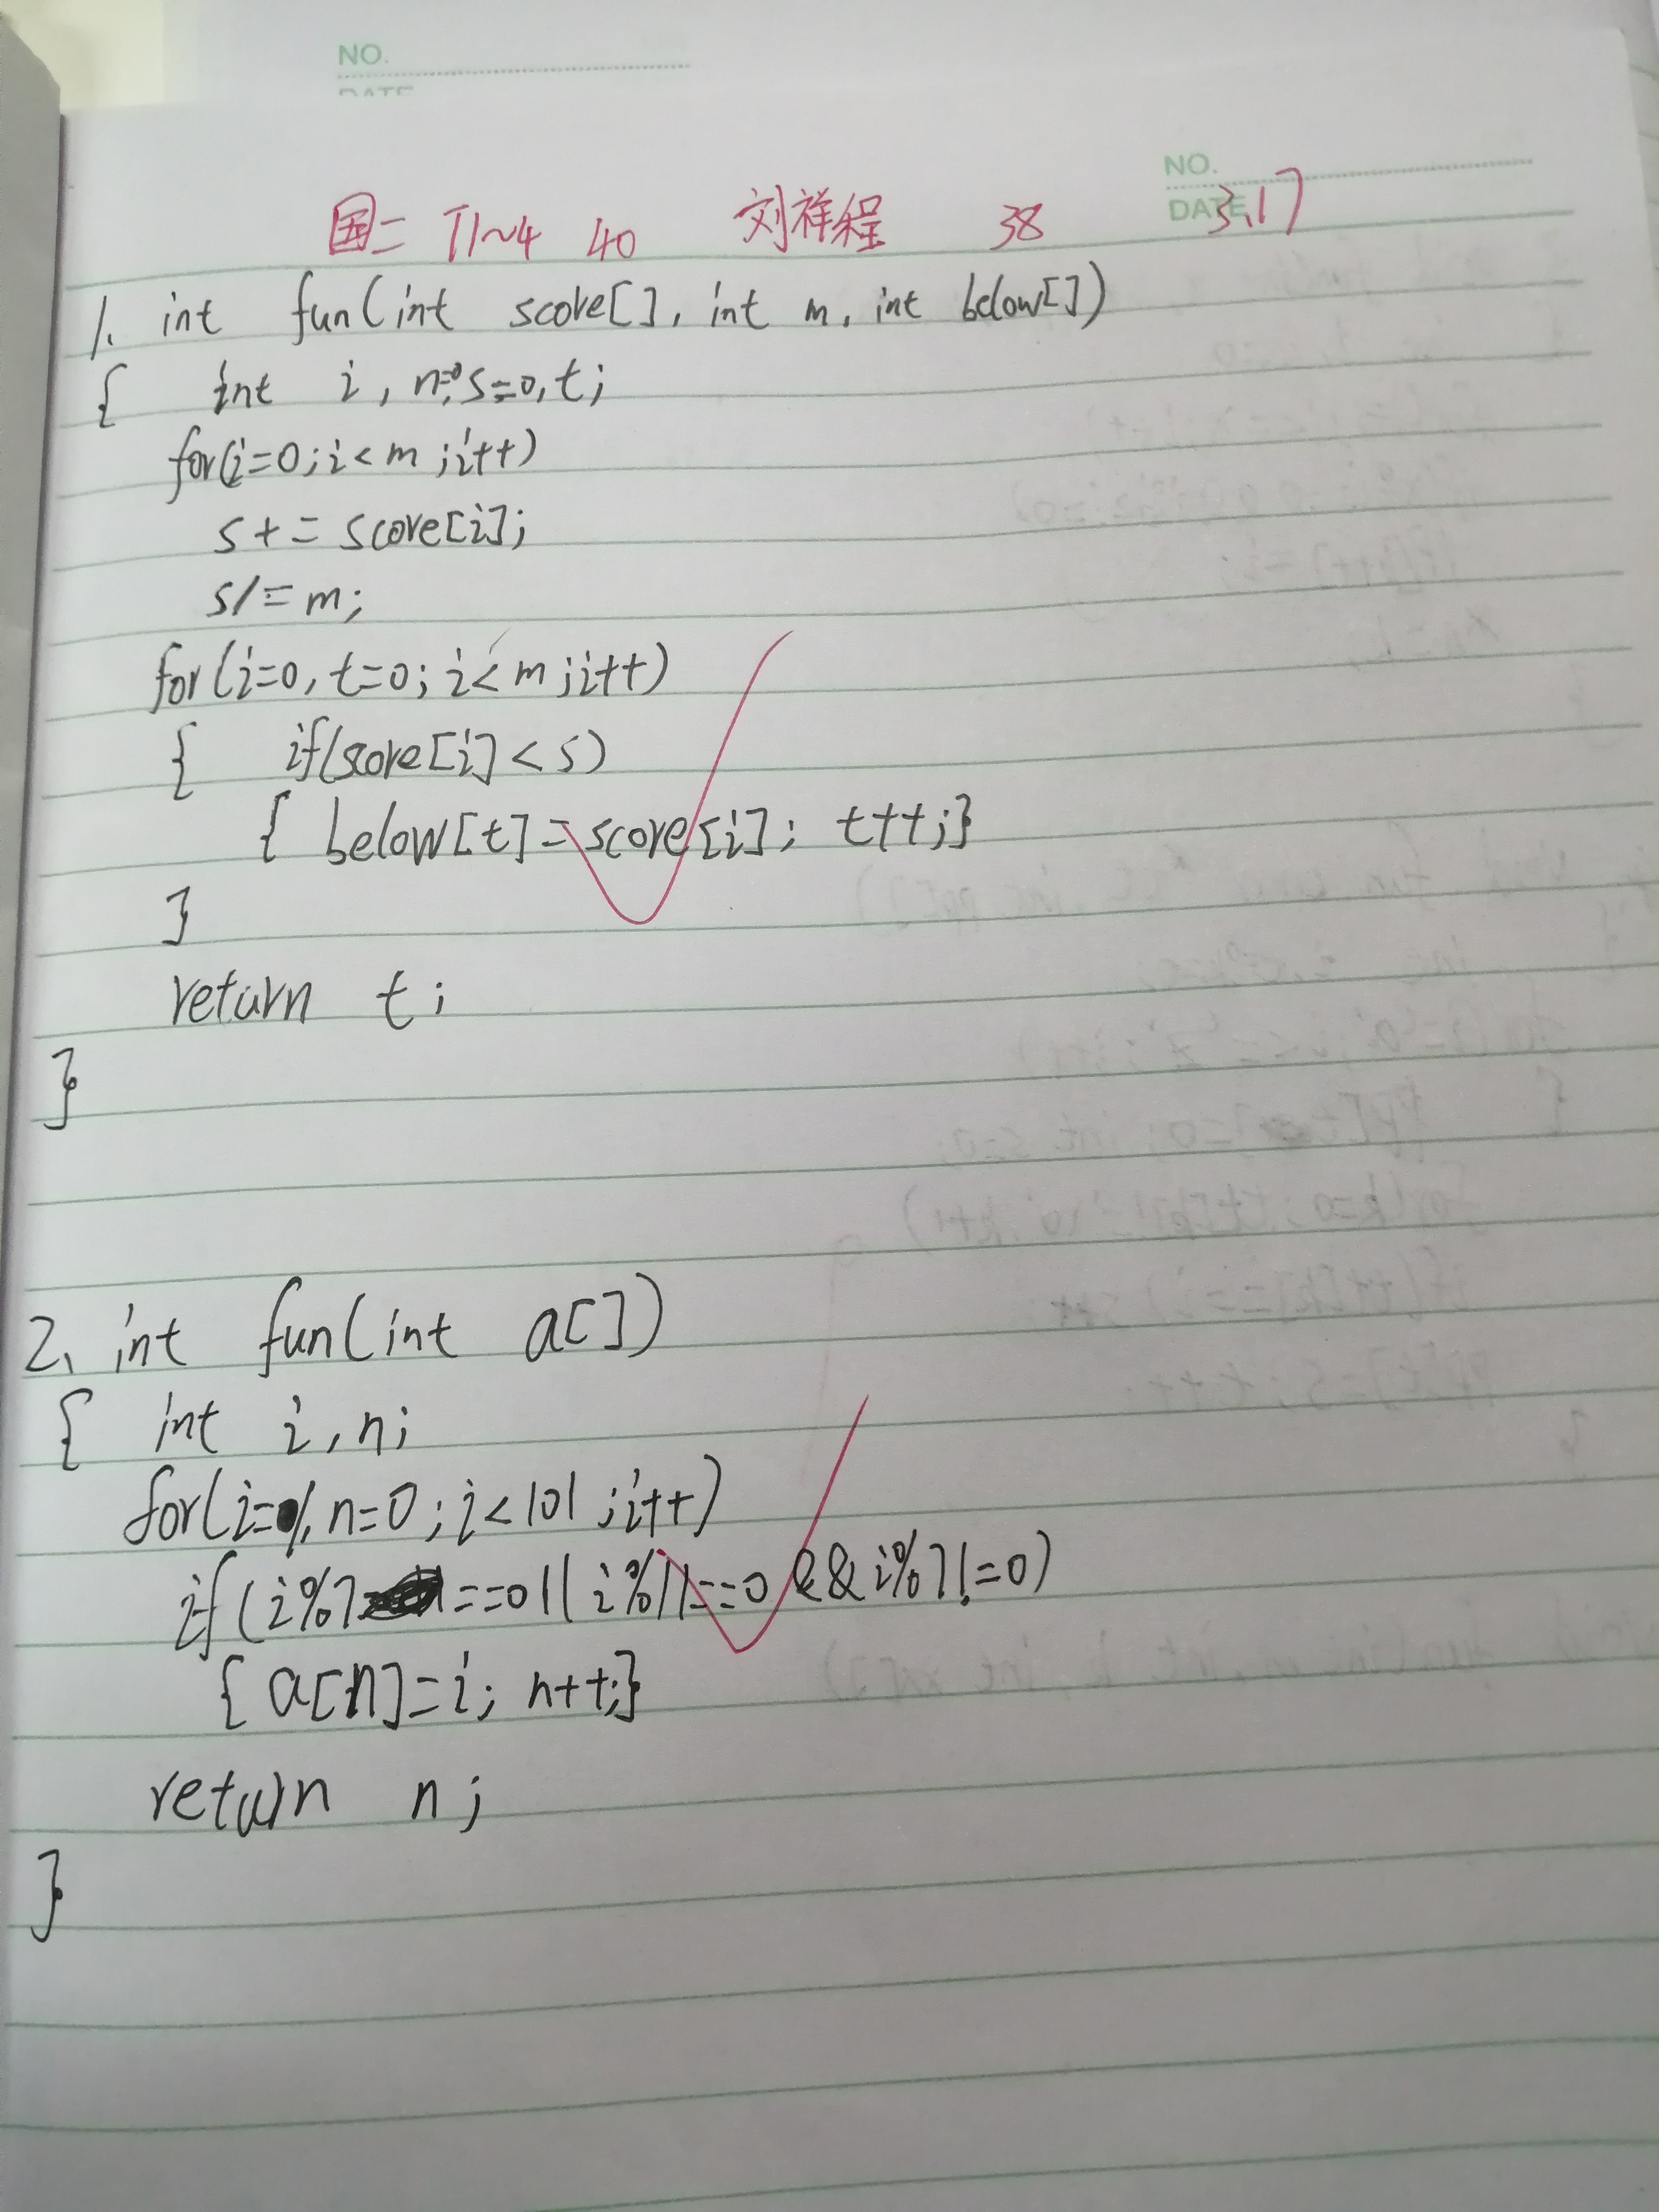 NO.
DATE
NO.
DATE 3.17
国二 T1~4 40 刘祥程 38
1. int fun(int score[], int m, int below[])
{ int i, n=0, s=0, t;
for(i=0; i<m; i++)
s += score[i];
s/=m;
for(i=0, t=0; i<m; i++)
{ if(score[i]<s)
{ below[t]=score[i]; t++;}
}
return t;
}
2. int fun(int a[])
{ int i, n;
for(i=1, n=0; i<101; i++)
if(i%7==0||i%11==0&&i%7!=0)
{ a[n]=i; n++;}
return n;
}